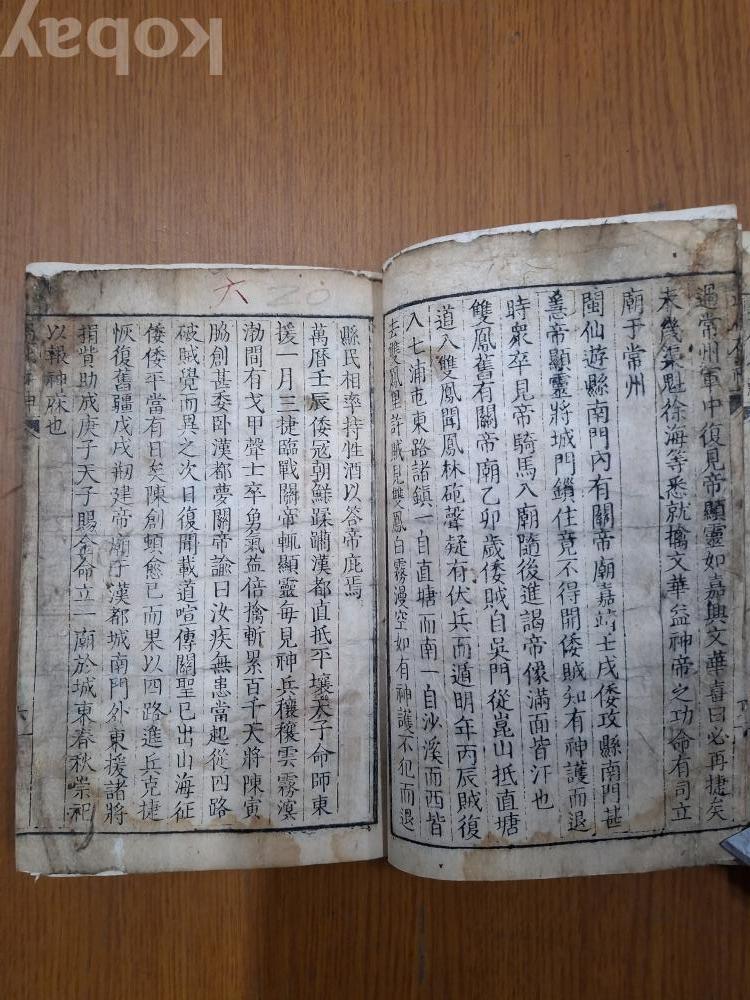 Kobay
過常州軍中復見帝顯靈如嘉興文華喜曰必再捷矣
未幾渠魁徐海等悉就擒文華益神帝之功命有司立
廟于常州
閩仙遊縣南門內有關帝廟嘉靖壬戌倭攻縣南門甚
急帝顯靈將城門鎖住竟不得開倭賊知有神護而退
時衆卒見帝騎馬入廟隨後進謁帝像滿面皆汗也
雙鳳舊有關帝廟乙卯歲倭賊自吳門從崑山抵直塘
道入雙鳳聞鳳林砲聲疑有伏兵而遁明年丙辰賊復
入七浦屯東路諸鎮一自直塘而南一自沙溪而西皆
去雙鳳里許賊見雙鳳白霧漫空如有神護不犯而退
大 20
縣民相率持牲酒以答帝庇焉
萬曆壬辰倭寇朝鮮蹂躪漢都直抵平壤天子命師東
援一月三捷臨戰關帝輒顯靈每見神兵穰穰雲霧溟
渤間有戈甲聲士卒勇氣益倍擒斬累百千天將陳寅
脇創甚委卧漢都夢關帝諭曰汝疾無患當起從四路
破賊覺而異之次日復聞載道喧傳關聖已出山海征
倭倭平當有日矣陳創頓愈已而果以四路進兵克捷
恢復舊疆戊戌刱建帝廟于漢都城南門外東援諸將
捐貲助成庚子天子賜金命立一廟於城東春秋崇祀
以報神庥也